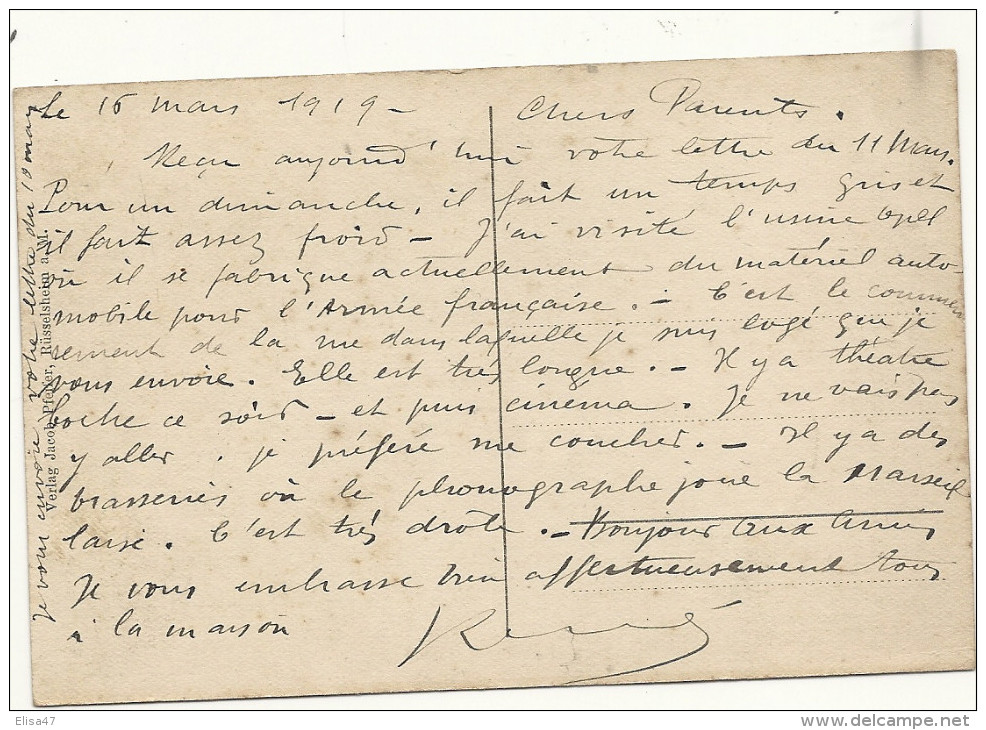 Le 16 mars 1919 - Chers Parents.
Reçu aujourd'hui votre lettre du 11 Mars.
Pour un dimanche, il fait un temps gris et
il fait assez froid - J'ai visité l'usine Opel
où il se fabrique actuellement du matériel auto-
mobile pour l'Armée française. - C'est le commen
sement de la rue dans laquelle je suis logé que je
vous envoie. Elle est très longue. - Il y a théatre
boche ce soir - et puis cinéma. Je ne vais pas
y aller. je préfère me coucher. - Il y a des
brasseries où le phonographe joue la Marseil
laise. C'est très drôle. - Bonjour aux amis
Je vous embrasse bien affectueusement tous
à la maison
René
Je vous envoie votre lettre du 10 mars
Verlag Jacob Pfeifer, Rüsselsheim a. M.
Elisa47
delcampe.net